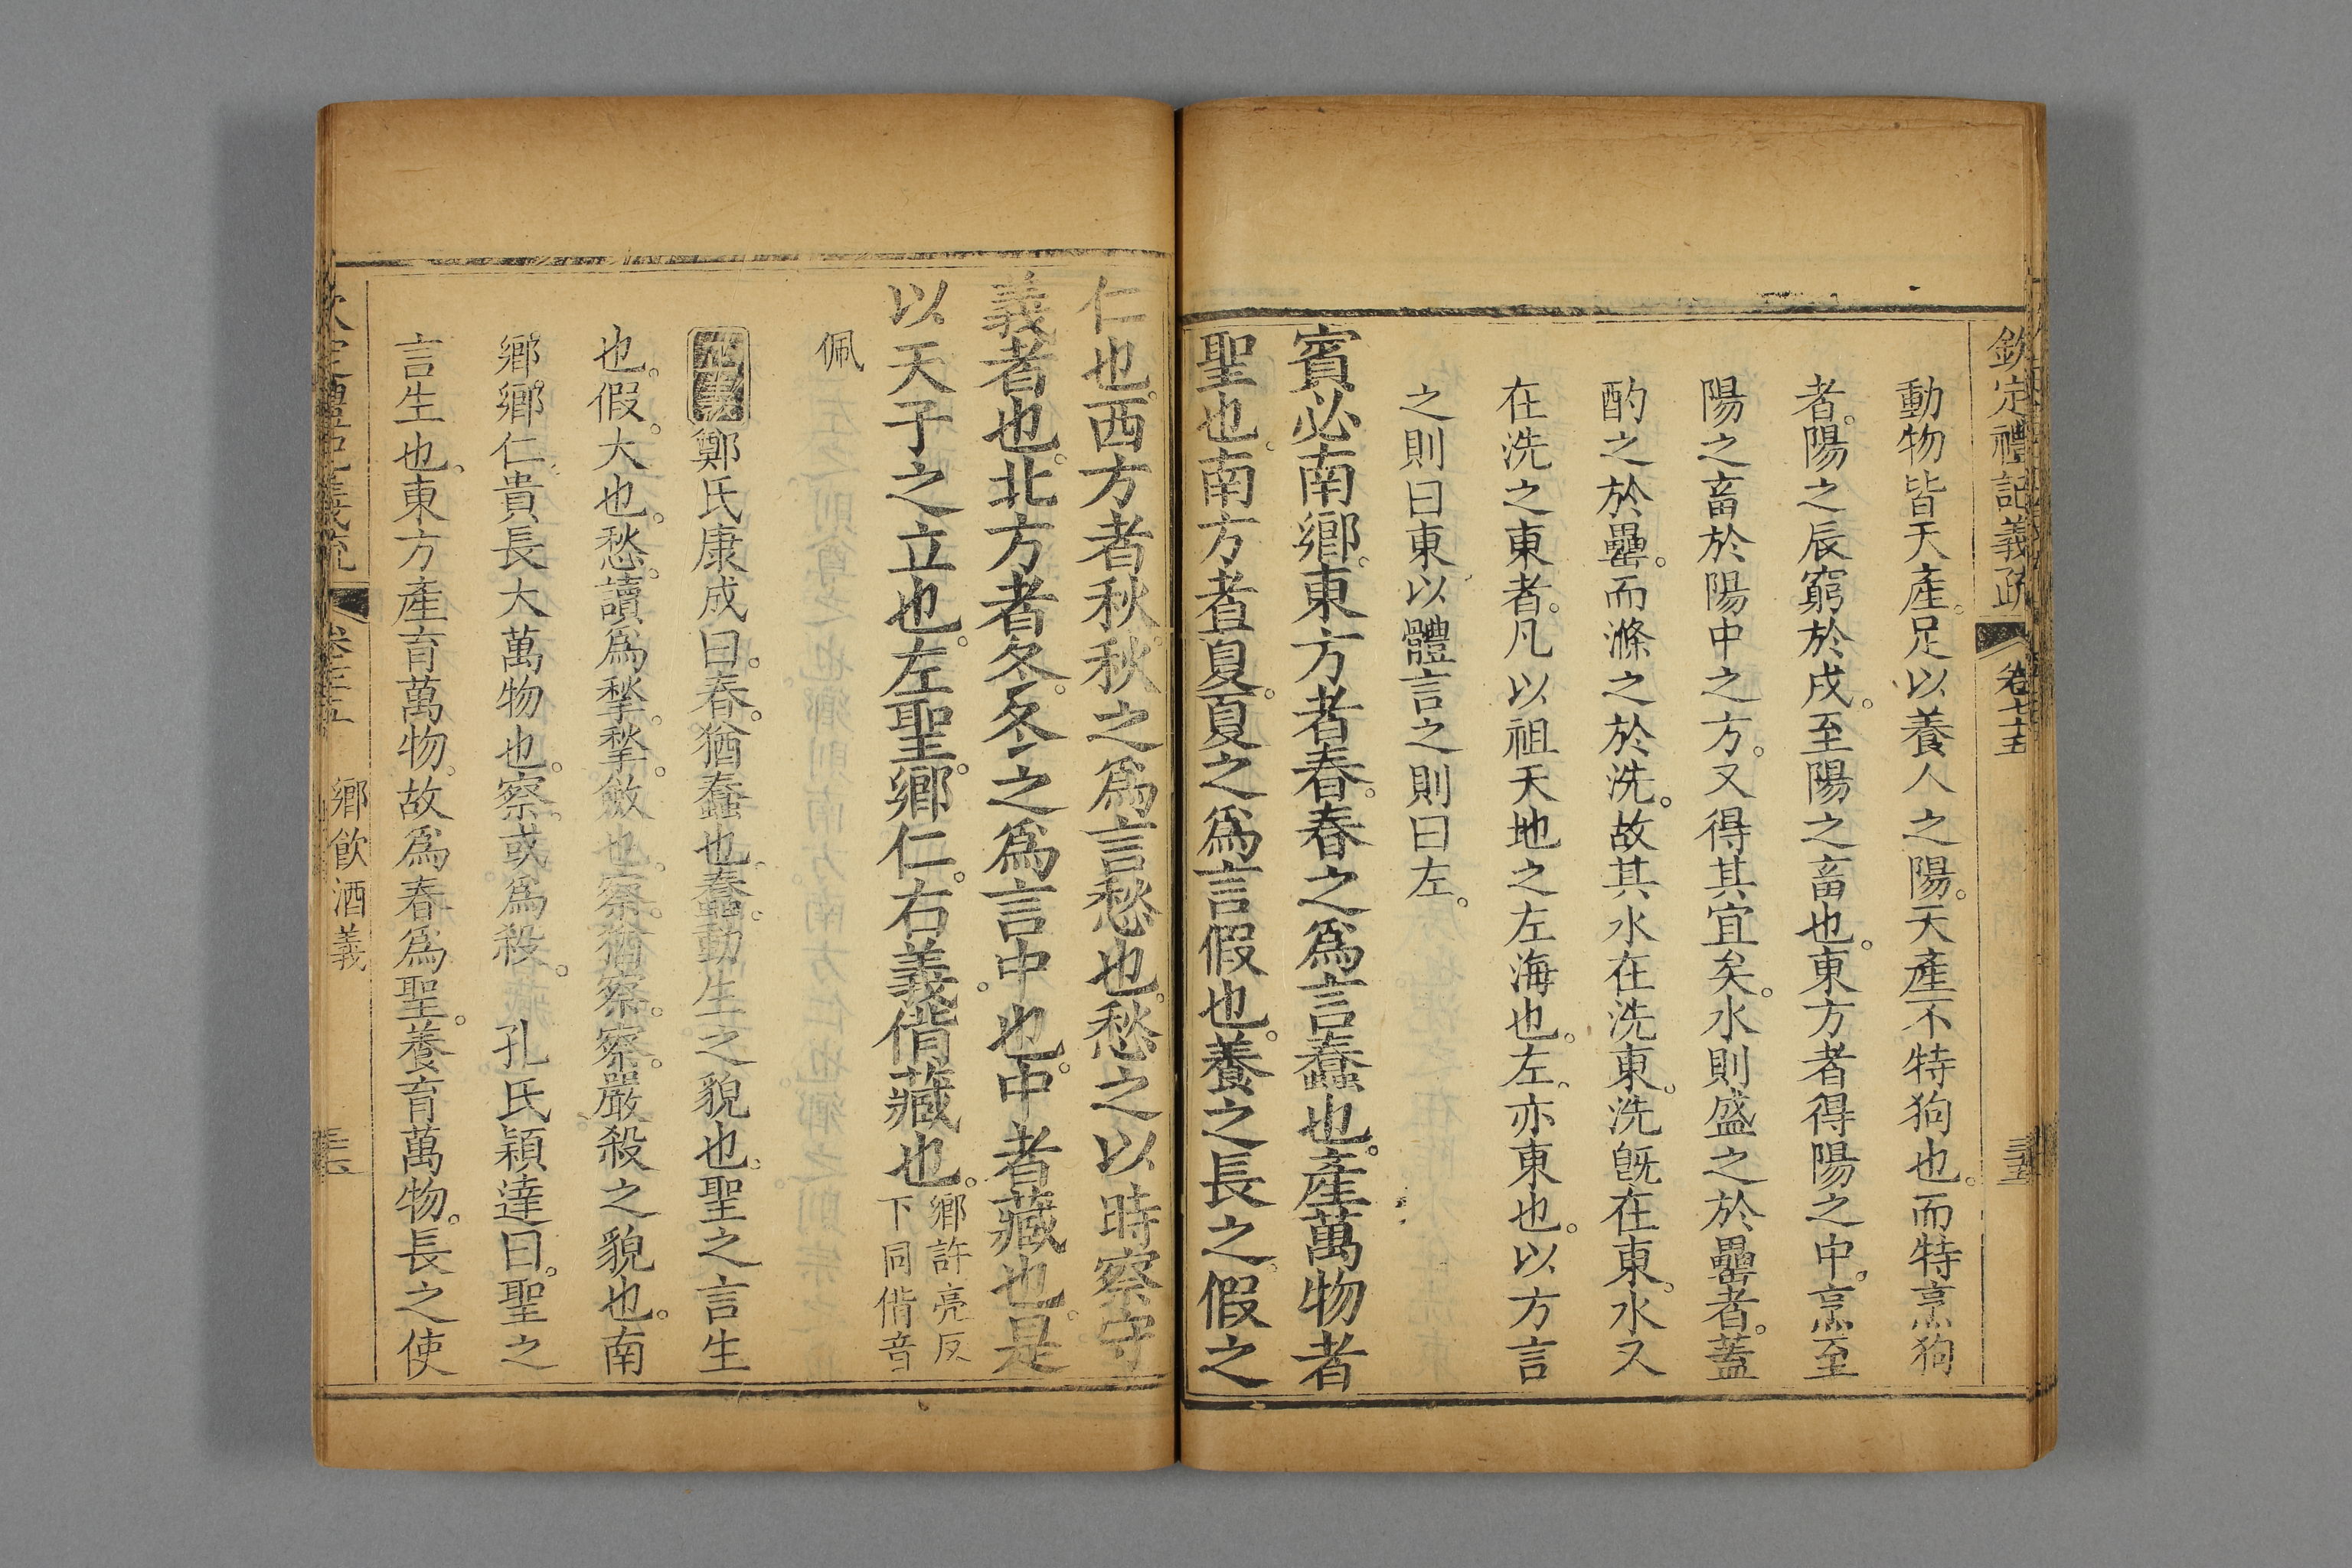 欽定禮記義疏 卷七十五
動物皆天產。足以養人之陽。天產不特狗也。而特烹狗
者。陽之辰窮於戌。至陽之畜也。東方者得陽之中。烹至
陽之畜於陽中之方。又得其宜矣。水則盛之於罍者。蓋
酌之於罍。而滌之於洗。故其水在洗東。洗旣在東。水又
在洗之東者。凡以祖天地之左海也。左。亦東也。以方言
之則曰東。以體言之則曰左。
賓必南鄉。東方者春。春之爲言蠢也。產萬物者
聖也。南方者夏。夏之爲言假也。養之長之。假之
仁也。西方者秋。秋之爲言愁也。愁之以時察守
義者也。北方者冬。冬之爲言中也。中者藏也。是
以天子之立也。左聖鄉仁。右義偝藏也。鄉許亮反
下同偝音
佩
鄭氏康成曰。春。猶蠢也。蠢。動生之貌也。聖之言生
也。假。大也。愁。讀爲揫。揫。斂也。察。猶察。察。嚴殺之貌也。南
鄉。鄉仁。貴長大萬物也。察。或爲殺。 孔氏穎達曰。聖之
言生也。東方產育萬物。故爲春爲聖。養育萬物。長之使
鄉飮酒義